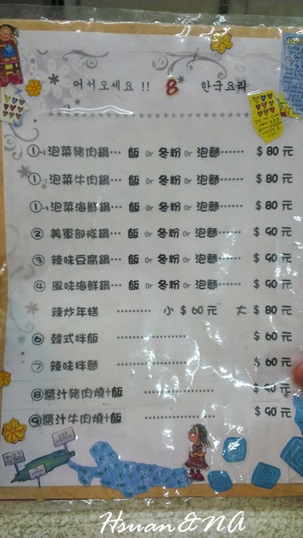 어서오세요 !! 8 한국요리
①→泡菜豬肉鍋… 飯 or 冬粉 or 泡麵…… $ 80 元
①→泡菜牛肉鍋… 飯 or 冬粉 or 泡麵…… $ 80 元
①→泡菜海鮮鍋… 飯 or 冬粉 or 泡麵…… $ 80 元
② 美軍部隊鍋… 飯 or 冬粉 or 泡麵…… $ 90 元
③ 辣味豆腐鍋… 飯 or 冬粉 or 泡麵…… $ 90 元
④ 風味海鮮鍋… 飯 or 冬粉 or 泡麵…… $ 90 元
辣炒年糕 ……… 小 $ 60 元 大 $ 80 元
⑥ 韓式拌飯 ……………… $ 60 元
⑦ 辣味拌麵 ……………… $ 60 元
⑧醬汁豬肉燒+飯 ……………… $ 90 元
⑨醬汁牛肉燒+飯 ……………… $ 90 元
Hsuan & NA